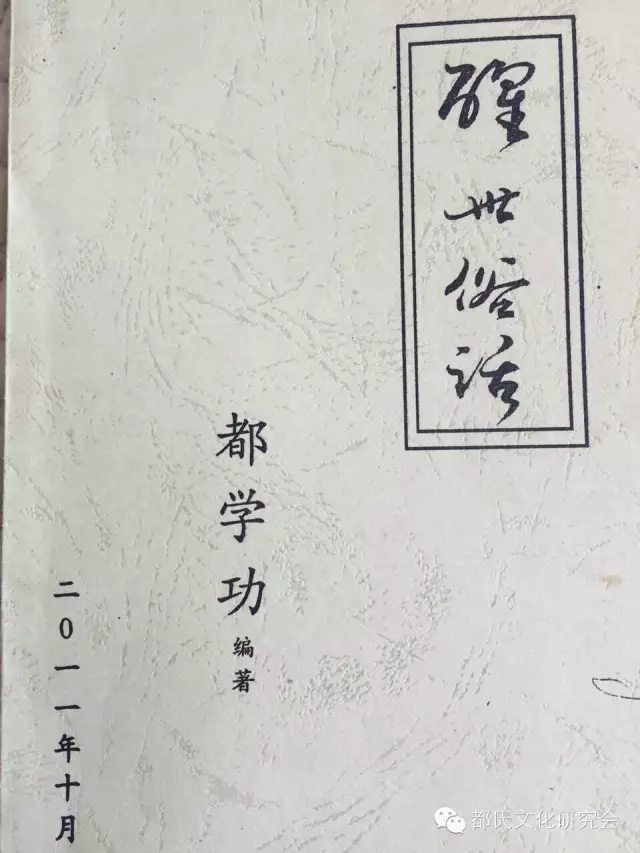 醒世俗话
都学功 编著
二0一一年十月
都氏文化研究会